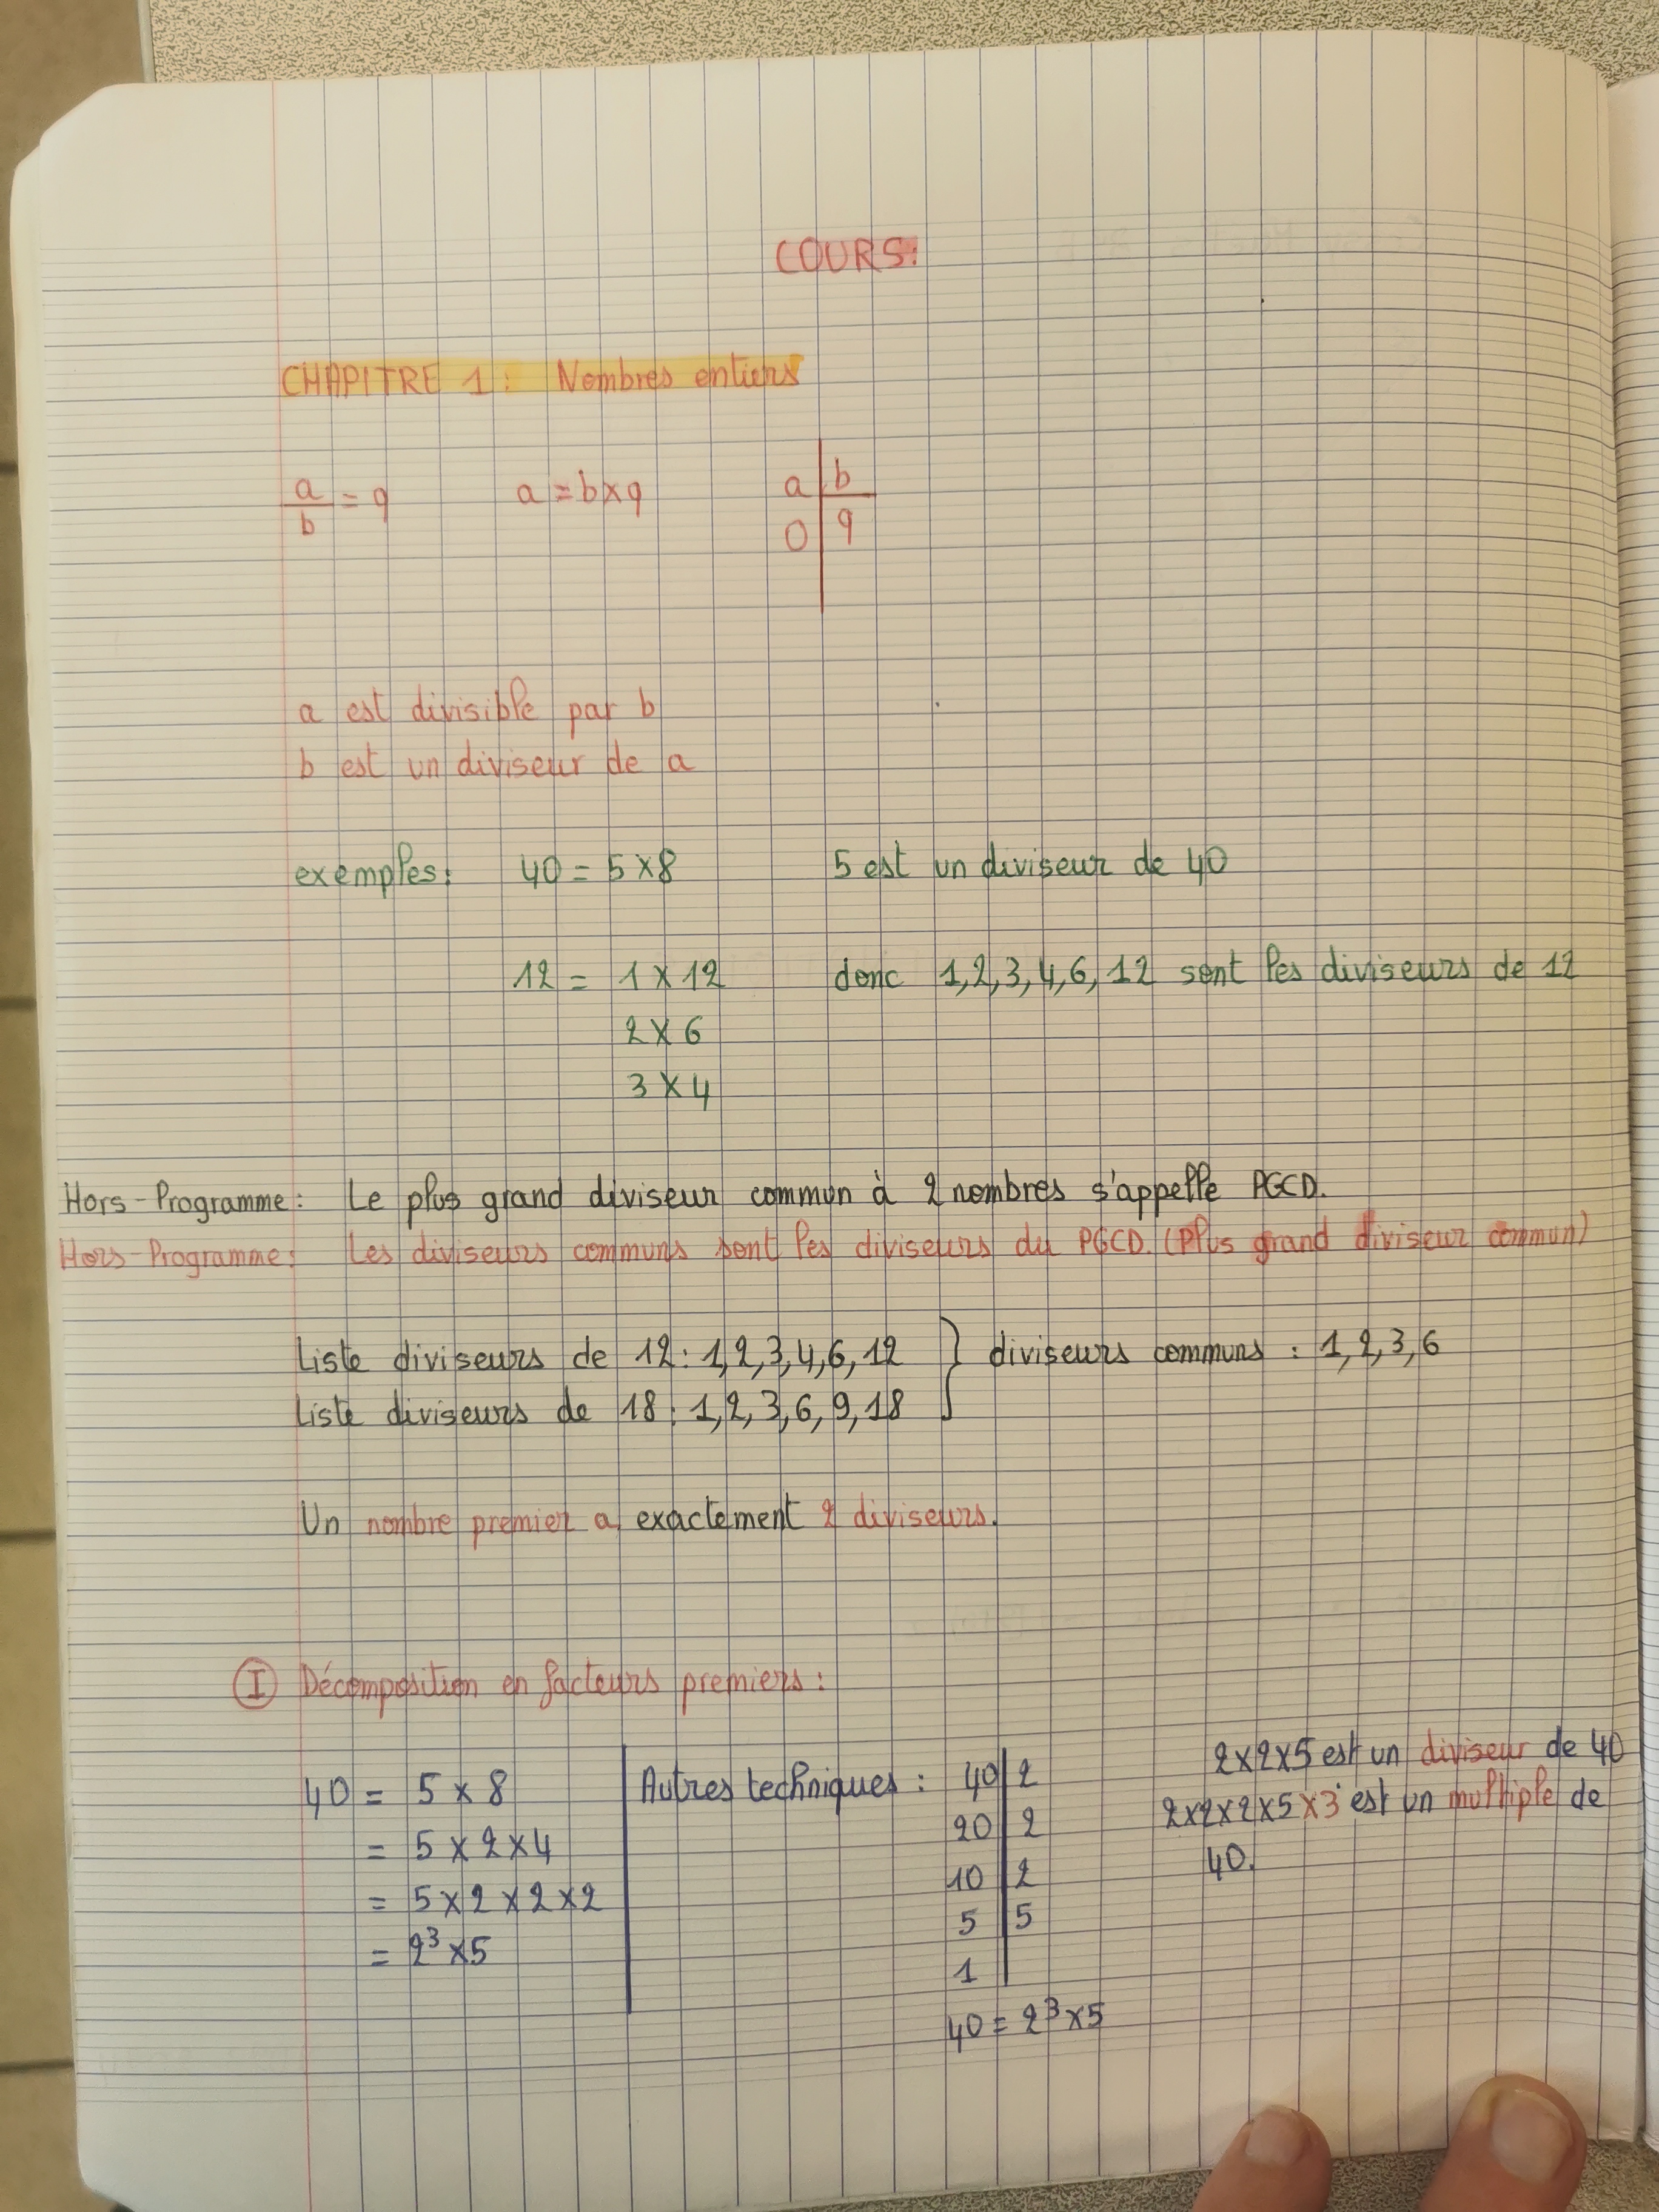 COURS:
CHAPITRE 1 : Nombres entiers
a/b = q    a = b x q    a | b
0 | q
a est divisible par b
b est un diviseur de a
exemples: 40 = 5 x 8    5 est un diviseur de 40
12 = 1 x 12    donc 1,2,3,4,6,12 sont les diviseurs de 12
2 x 6
3 x 4
Hors-Programme: Le plus grand diviseur commun à 2 nombres s'appelle PGCD.
Hors-Programme: Les diviseurs communs sont les diviseurs du PGCD. (Plus grand diviseur commun)
Liste diviseurs de 12 : 1,2,3,4,6,12 } diviseurs communs : 1,2,3,6
Liste diviseurs de 18 : 1,2,3,6,9,18
Un nombre premier a exactement 2 diviseurs.
I Décomposition en facteurs premiers :
40 = 5 x 8
= 5 x 2 x 4
= 5 x 2 x 2 x 2
= 2³ x 5
Autres techniques : 40 | 2
20 | 2
10 | 2
5 | 5
1 |
40 = 2³ x 5
2x2x5 est un diviseur de 40
2x2x2x5x3 est un multiple de
40.